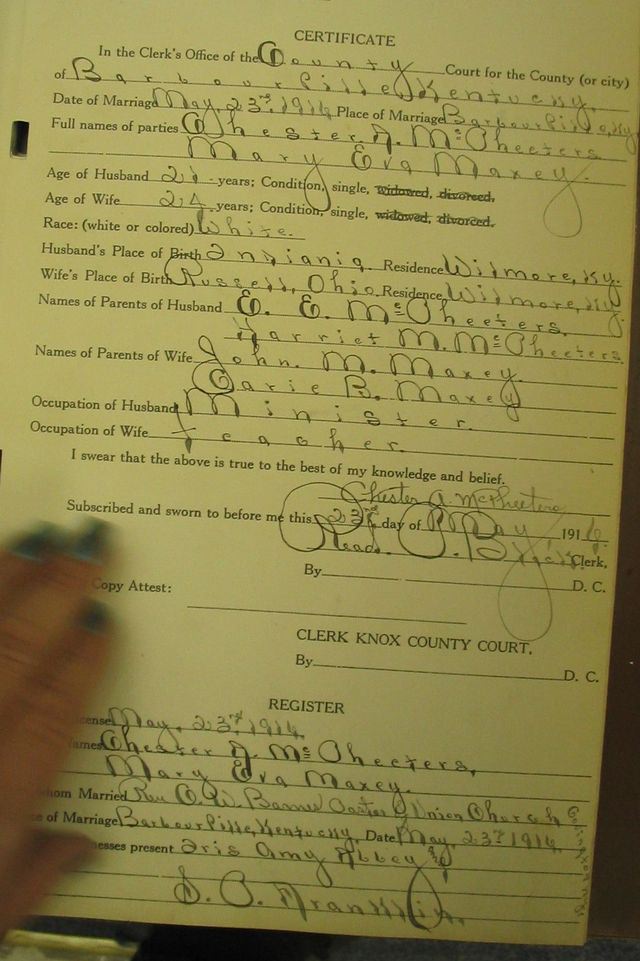 CERTIFICATE
In the Clerk's Office of the County Court for the County (or city)
of Barbourville, Kentucky.
Date of Marriage May, 23rd, 1916 Place of Marriage Barbourville, Ky
Full names of parties Chester A. McPheeters
Mary Eva Maxey.
Age of Husband 21 years; Condition, single, widowed, divorced.
Age of Wife 24 years; Condition, single, widowed, divorced.
Race: (white or colored) White.
Husband's Place of Birth Indiania. Residence Wilmore, Ky.
Wife's Place of Birth Russell, Ohio. Residence Wilmore, Ky
Names of Parents of Husband E. E. McPheeters.
Harriet M. McPheeters.
Names of Parents of Wife John. M. Maxey.
Carie B. Maxey
Occupation of Husband Minister.
Occupation of Wife Teacher.
I swear that the above is true to the best of my knowledge and belief.
Chester A. McPheeters
Subscribed and sworn to before me this 23rd day of May, 1916.
Read. P. Clerk,
By D. C.
Copy Attest:
CLERK KNOX COUNTY COURT.
By D. C.
REGISTER
May, 23rd, 1916.
Chester A. McPheeters,
Mary Eva Maxey.
whom Married Rev O. W. Pastor Union Church
of Marriage Barbourville, Kentucky, Date May, 23rd 1916.
present Iris Amy Abbey &
S. C. Franklin.